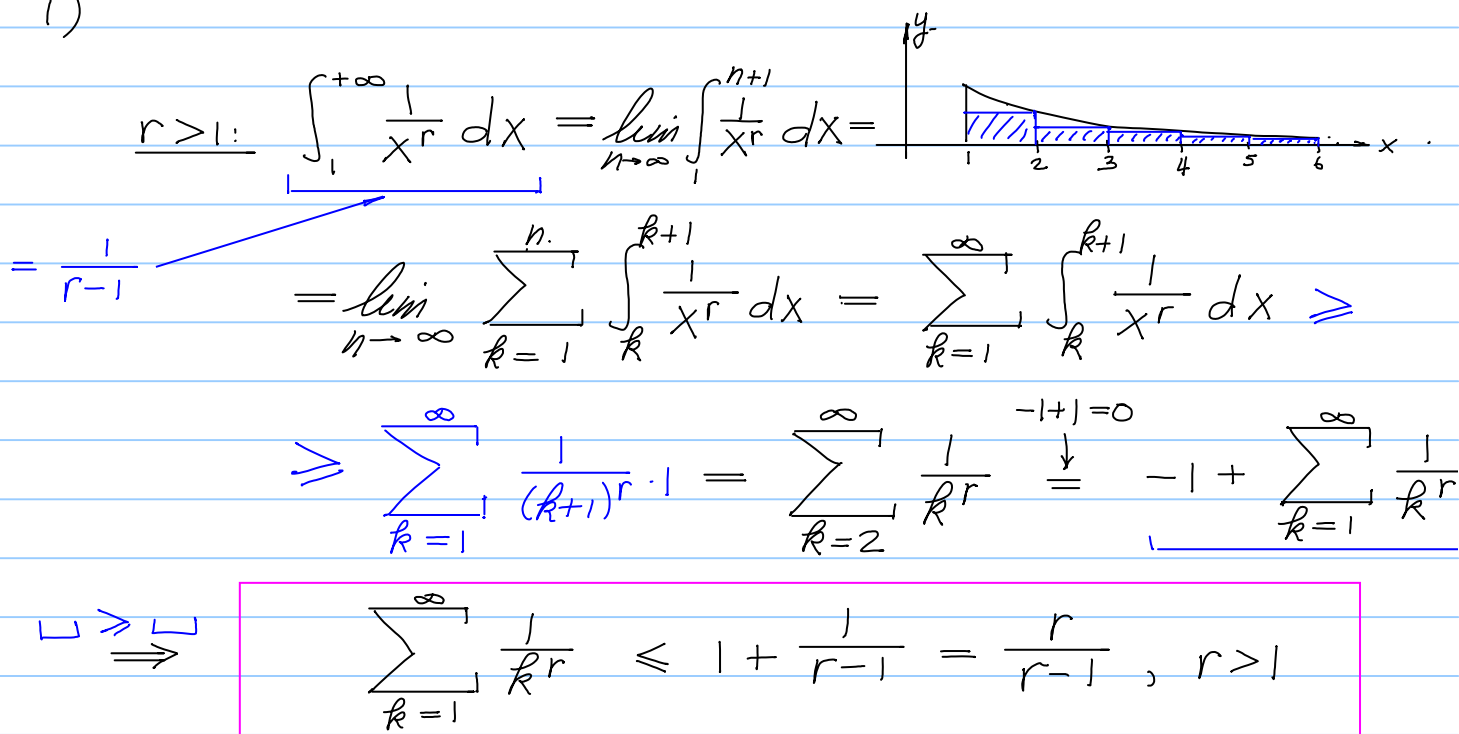 1)
y
r > 1: ∫₁^{+∞} 1/x^r dx = lim_{n→∞} ∫₁^{n+1} 1/x^r dx =
1 2 3 4 5 6 x
= 1/(r-1)
= lim_{n→∞} ∑_{k=1}^{n} ∫_k^{k+1} 1/x^r dx = ∑_{k=1}^{∞} ∫_k^{k+1} 1/x^r dx ⩾
-1+1=0
⩾ ∑_{k=1}^{∞} 1/(k+1)^r · 1 = ∑_{k=2}^{∞} 1/k^r = -1 + ∑_{k=1}^{∞} 1/k^r
⊔ ⩾ ⊔
⟹ ∑_{k=1}^{∞} 1/k^r ⩽ 1 + 1/(r-1) = r/(r-1), r > 1